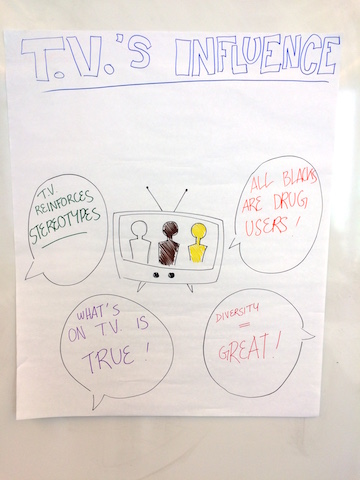 T.V.'S INFLUENCE
T.V.
REINFORCES
STEREOTYPES
ALL BLACKS
ARE DRUG
USERS!
WHAT'S
ON T.V. IS
TRUE!
DIVERSITY
=
GREAT!